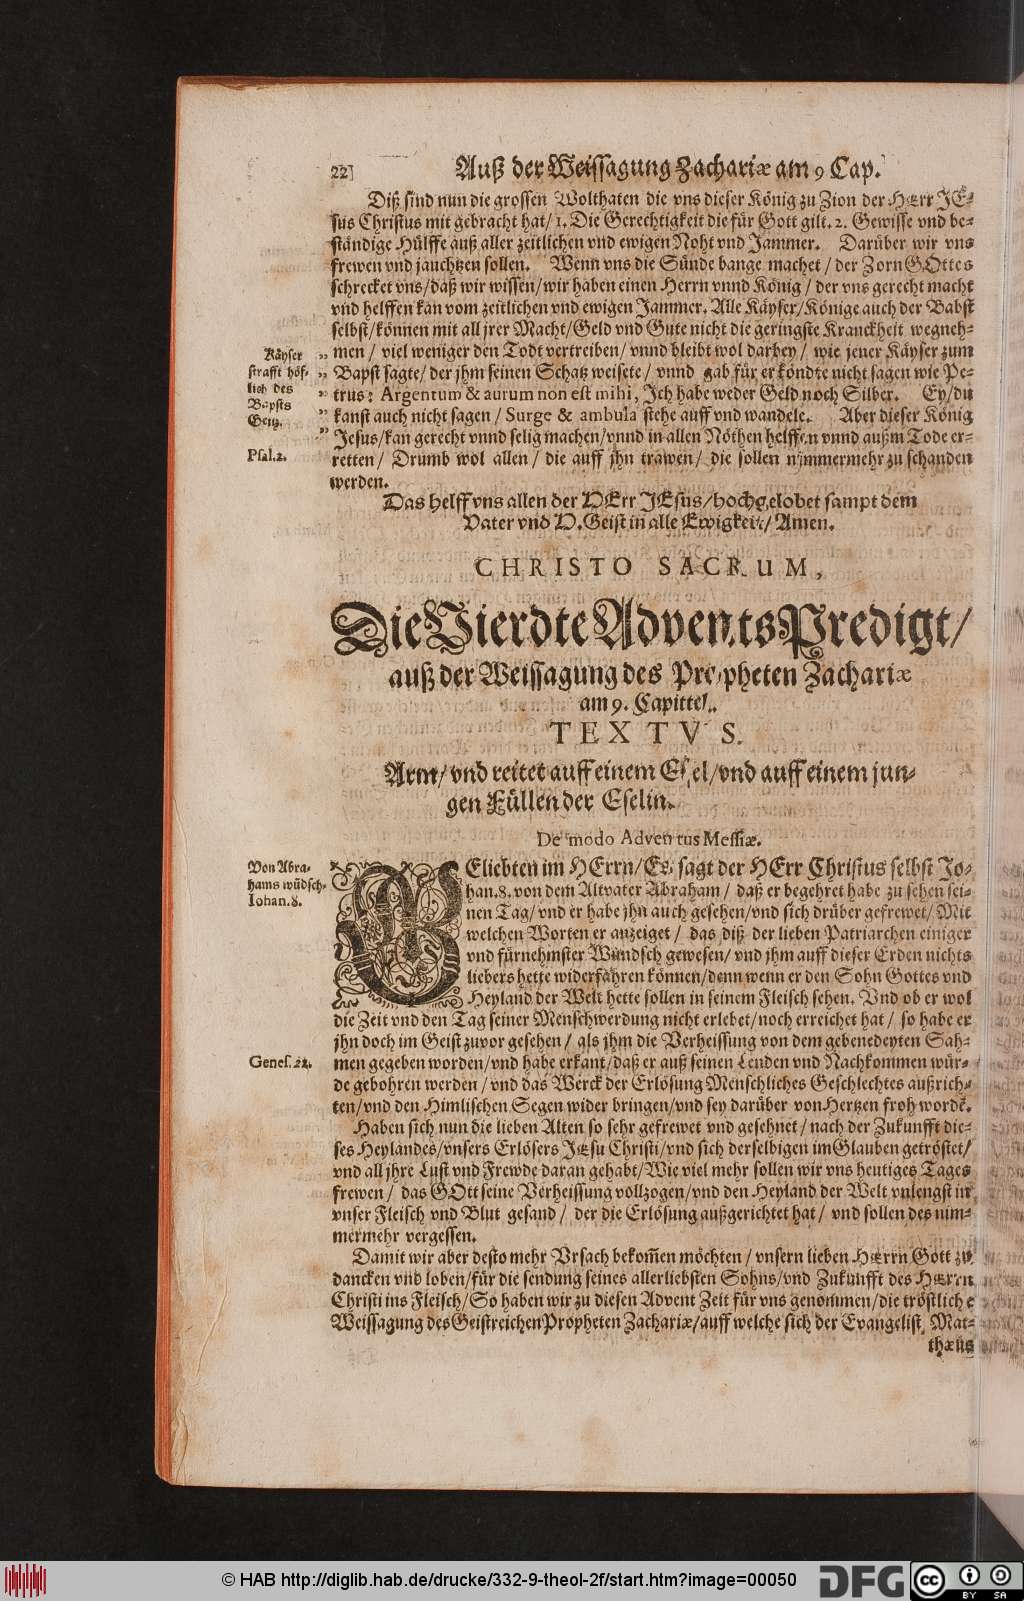 22 Auß der Weissagung Zachariæ am 9 Cap.
Diß sind nun die grossen Wolthaten die vns dieser König zu Zion der HErr JE-
sus Christus mit gebracht hat/ 1. Die Gerechtigkeit die für Gott gilt. 2. Gewisse vnd be-
ständige Hülffe auß aller zeitlichen vnd ewigen Noht vnd Jammer. Darüber wir vns
frewen vnd jauchtzen sollen. Wenn vns die Sünde bange machet / der Zorn GOttes
schrecket vns/ daß wir wissen/ wir haben einen Herrn vnnd König / der vns gerecht macht
vnd helffen kan vom zeitlichen vnd ewigen Jammer. Alle Käyser/ Könige auch der Babst
selbst/ können mit all jrer Macht/ Geld vnd Gute nicht die geringste Kranckheit wegneh-
men / viel weniger den Todt vertreiben/ vnnd bleibt wol darbey / wie jener Käyser zum
Bapst sagte/ der jhm seinen Schatz weisete / vnnd gab für er köndte nicht sagen wie Pe-
trus: Argentum & aurum non est mihi, Ich habe weder Geld noch Silber. Ey/ du
kanst auch nicht sagen / Surge & ambula stehe auff vnd wandele. Aber dieser König
Jesus/ kan gerecht vnnd selig machen/ vnnd in allen Nöthen helffen vnnd außm Tode er-
retten / Drumb wol allen / die auff jhn trawen/ die sollen nimmermehr zu schanden
werden.
Käyser
strafft höf-
lich des
Bapsts
Geitz.
Psal. 2.
Das helff vns allen der HErr JEsus/ hochgelobet sampt dem
Vater vnd H. Geist in alle Ewigkeit/ Amen.
CHRISTO SACRUM,
Die Vierdte Advents Predigt/
auß der Weissagung des Propheten Zachariæ
am 9. Capittel.
TEXTVS.
Arm/ vnd reitet auff einem Esel/ vnd auff einem jun-
gen Füllen der Eselin.
De modo Adventus Messiæ.
Von Abra-
hams wündsch.
Iohan. 8.
GEliebten im HErrn/ Es sagt der HErr Christus selbst Jo-
han. 8. von dem Altvater Abraham / daß er begehret habe zu sehen sei-
nen Tag/ vnd er habe jhn auch gesehen/ vnd sich drüber gefrewet/ Mit
welchen Worten er anzeiget / das diß der lieben Patriarchen einiger
vnd fürnehmster Wündsch gewesen/ vnd jhm auff dieser Erden nichts
liebers hette widerfahren können/ denn wenn er den Sohn Gottes vnd
Heyland der Welt hette sollen in seinem Fleisch sehen. Vnd ob er wol
die Zeit vnd den Tag seiner Menschwerdung nicht erlebet/ noch erreichet hat / so habe er
jhn doch im Geist zuvor gesehen / als jhm die Verheissung von dem gebenedeyten Sah-
men gegeben worden/ vnd habe erkant/ daß er auß seinen Lenden vnd Nachkommen wür-
de gebohren werden / vnd das Werck der Erlösung Menschliches Geschlechtes außrich-
ten/ vnd den Himlischen Segen wider bringen/ vnd sey darüber von Hertzen froh wordē.
Genes. 22.
Haben sich nun die lieben Alten so sehr gefrewet vnd gesehnet / nach der Zukunfft die-
ses Heylandes/ vnsers Erlösers JEsu Christi/ vnd sich derselbigen im Glauben getröstet/
vnd all jhre Lust vnd Frewde daran gehabt/ Wie viel mehr sollen wir vns heutiges Tages
frewen / das GOtt seine Verheissung vollzogen/ vnd den Heyland der Welt vnlengst in
vnser Fleisch vnd Blut gesand / der die Erlösung außgerichtet hat / vnd sollen des nim-
mermehr vergessen.
Damit wir aber desto mehr Vrsach bekom̄en möchten / vnsern lieben HErrn Gott zu
dancken vnd loben/ für die sendung seines allerliebsten Sohns/ vnd Zukunfft des HErrn
Christi ins Fleisch/ So haben wir zu diesen Advent Zeit für vns genommen/ die tröstliche
Weissagung des Geistreichen Propheten Zachariæ/ auff welche sich der Evangelist Mat-
thæus
© HAB http://diglib.hab.de/drucke/332-9-theol-2f/start.htm?image=00050
DFG
cc
BY SA